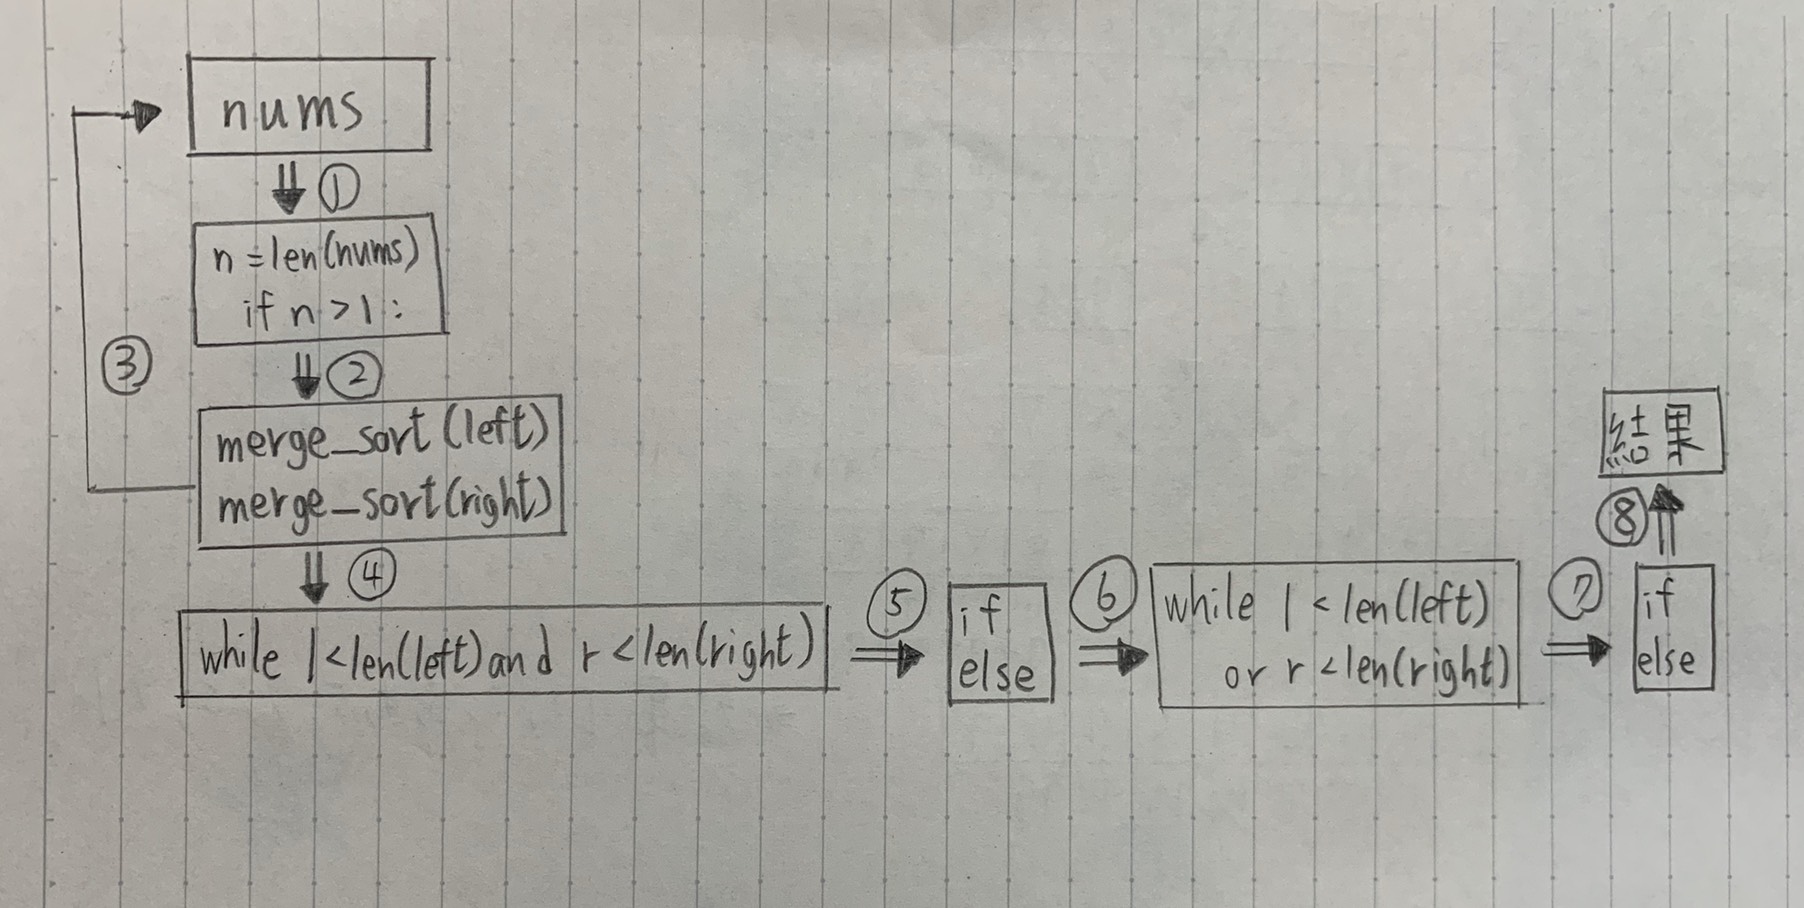 nums
①
n=len(nums)
if n>1:
②
③
merge_sort(left)
merge_sort(right)
④
while l<len(left)and r<len(right)
⑤
if
else
⑥
while l<len(left)
or r<len(right)
⑦
if
else
⑧
結果